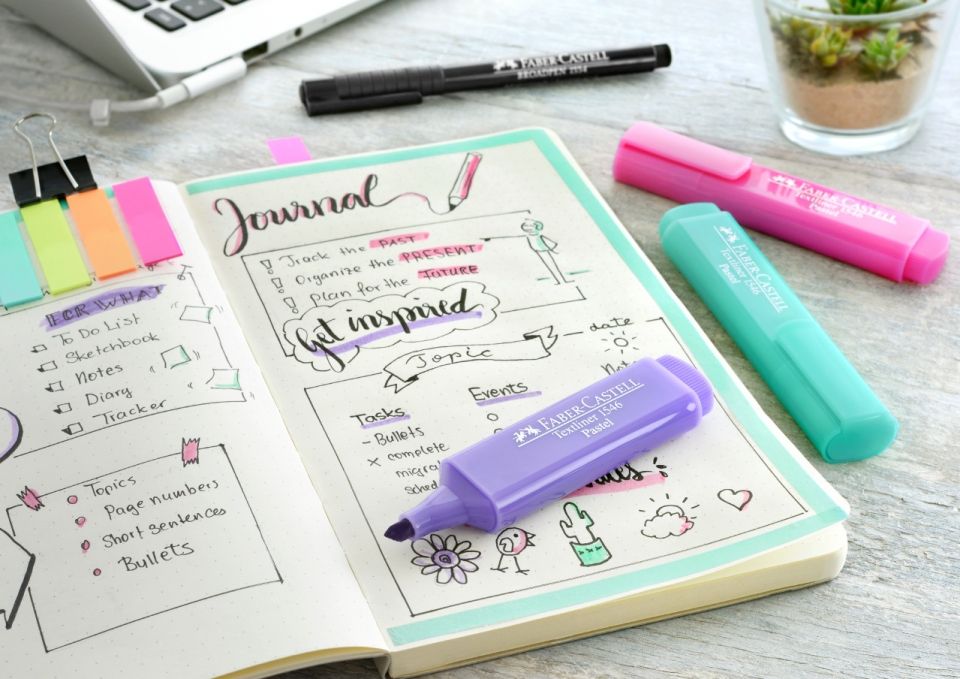 FOR WHAT
To Do List
Sketchbook
Notes
Diary
Tracker
Topics
Page numbers
Short sentences
Bullets
Journal
! Track the PAST
! Organize the PRESENT
! plan for the FUTURE
Get inspired
Topic
date
Tasks
- Bullets
× complete
Events
FABER-CASTELL
BROADPEN 1554
FABER-CASTELL
Textliner 1546
Pastel
FABER-CASTELL
Textliner 1546
Pastel
FABER-CASTELL
Textliner 1546
Pastel